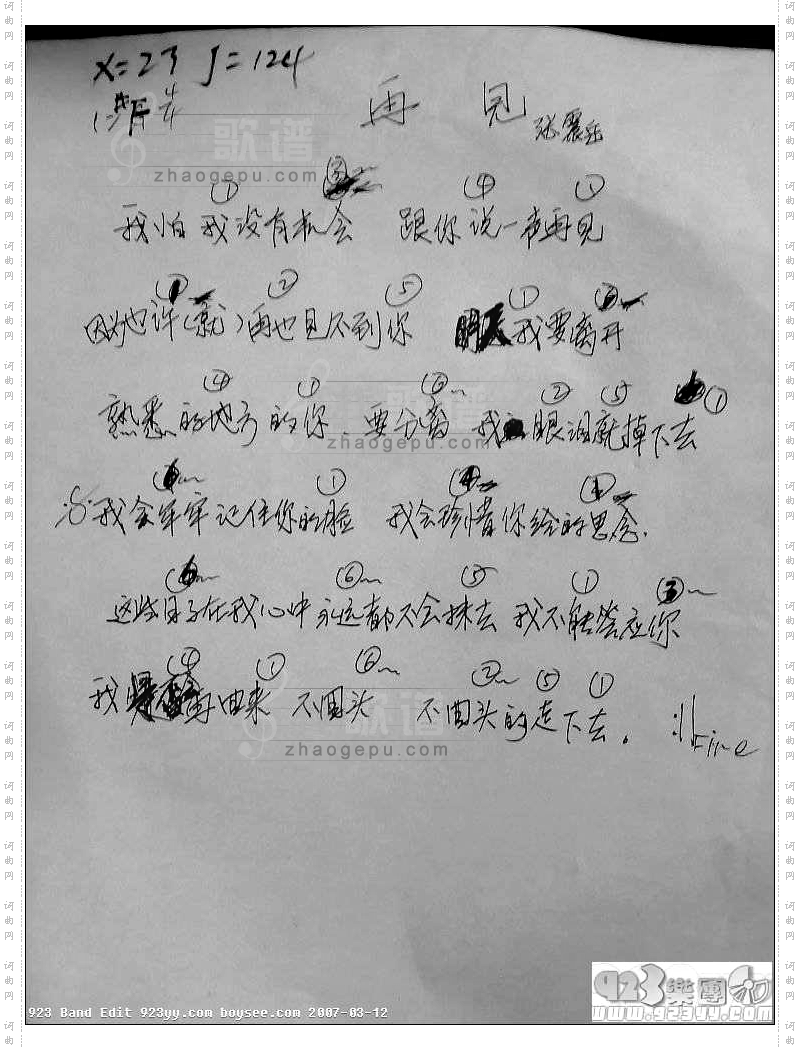 X=23 J=124
1=#F 4/4
再 见 张震岳
① ③ ④ ①
我怕我没有机会 跟你说一声再见
② ⑤ ①
因为也许(就)再也见不到你 明天我要离开
④ ① ⑥ ② ⑤ ①
熟悉的地方的你 要分离 我 眼泪就掉下去
① ④
我会牢牢记住你的脸 我会珍惜你给的思念.
⑥ ⑤ ① ③
这些日子在我心中永远都不会抹去 我不能答应你
④ ① ⑥ ② ⑤ ①
我 再回来 不回头 不回头的走下去。 :||Fine
歌谱
zhaogepu.com
歌谱
zhaogepu.com
歌谱
zhaogepu.com
923樂團
www.923yy.com
923 Band Edit 923yy.com boysee.com 2007-03-12
词曲网